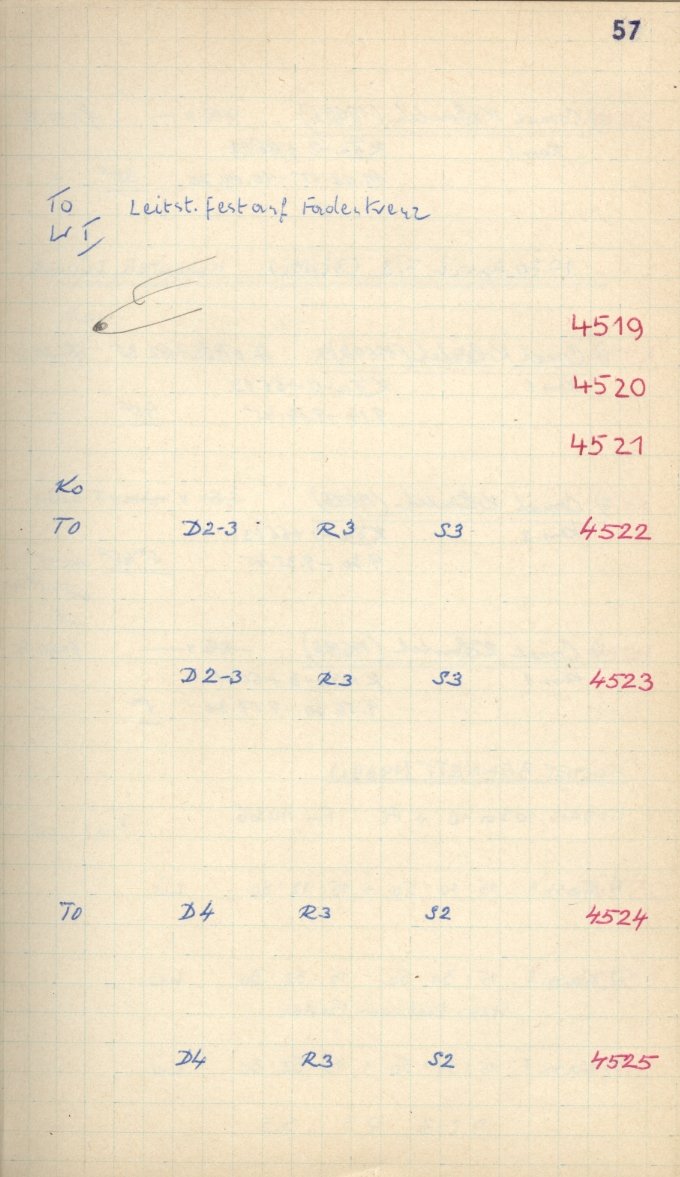 57
To Leitst. fest auf Fadenkreuz
4519
4520
4521
Ko
To D2-3 R3 S3 4522
D2-3 R3 S3 4523
To D4 R3 S2 4524
D4 R3 S2 4525